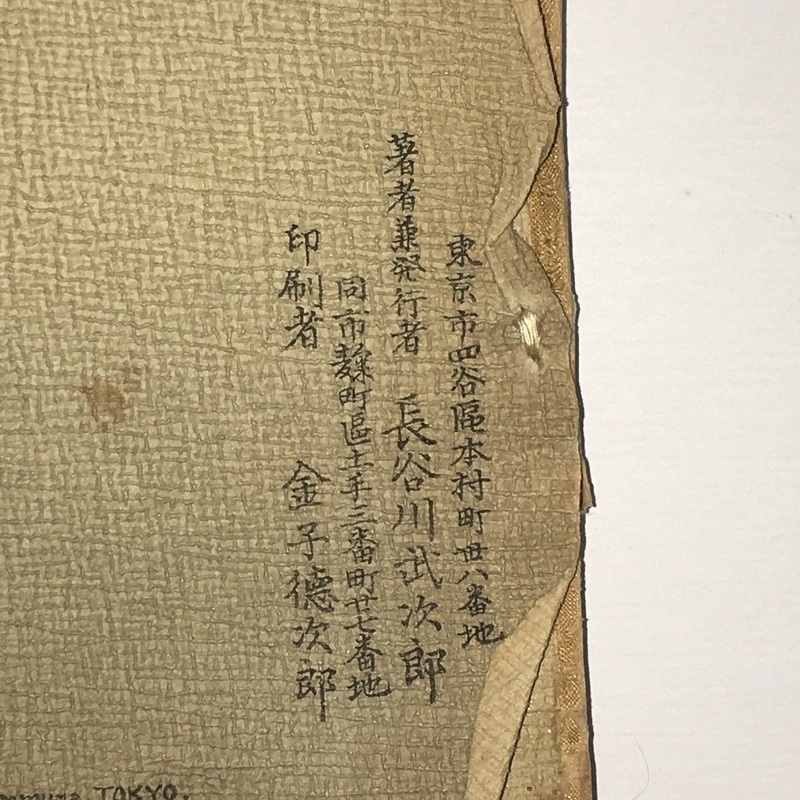 東京市四谷區本村町卅八番地
著者兼発行者 長谷川武次郎
同市麹町區土手三番町廿七番地
印刷者 金子徳次郎
TOKYO.